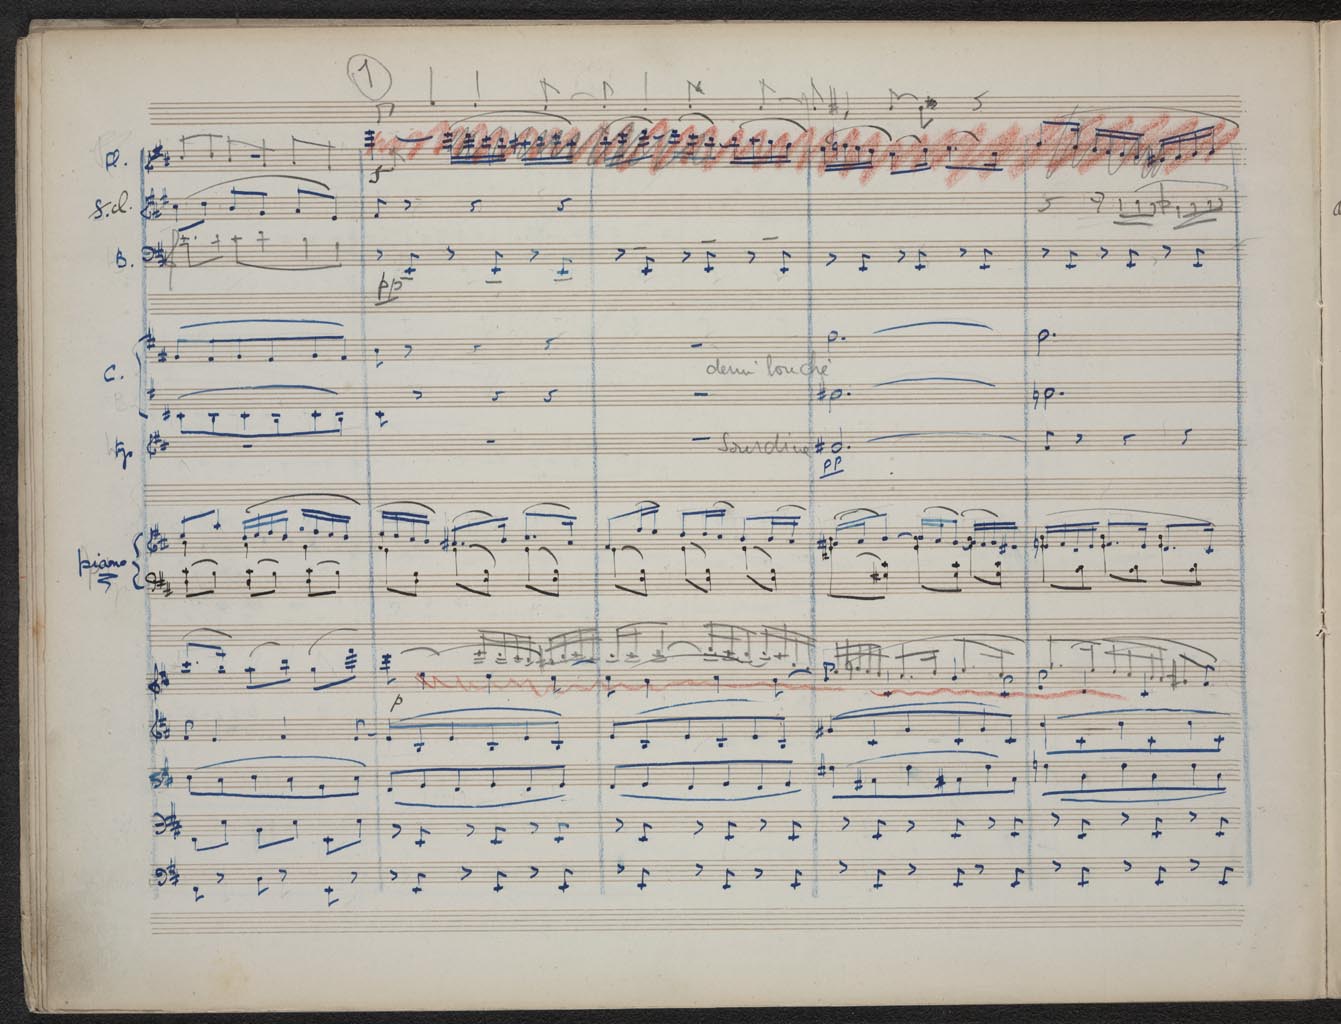 1
fl.
s.cl.
B.
pp
C.
demi bouché
Sourdine
pp
piano
p